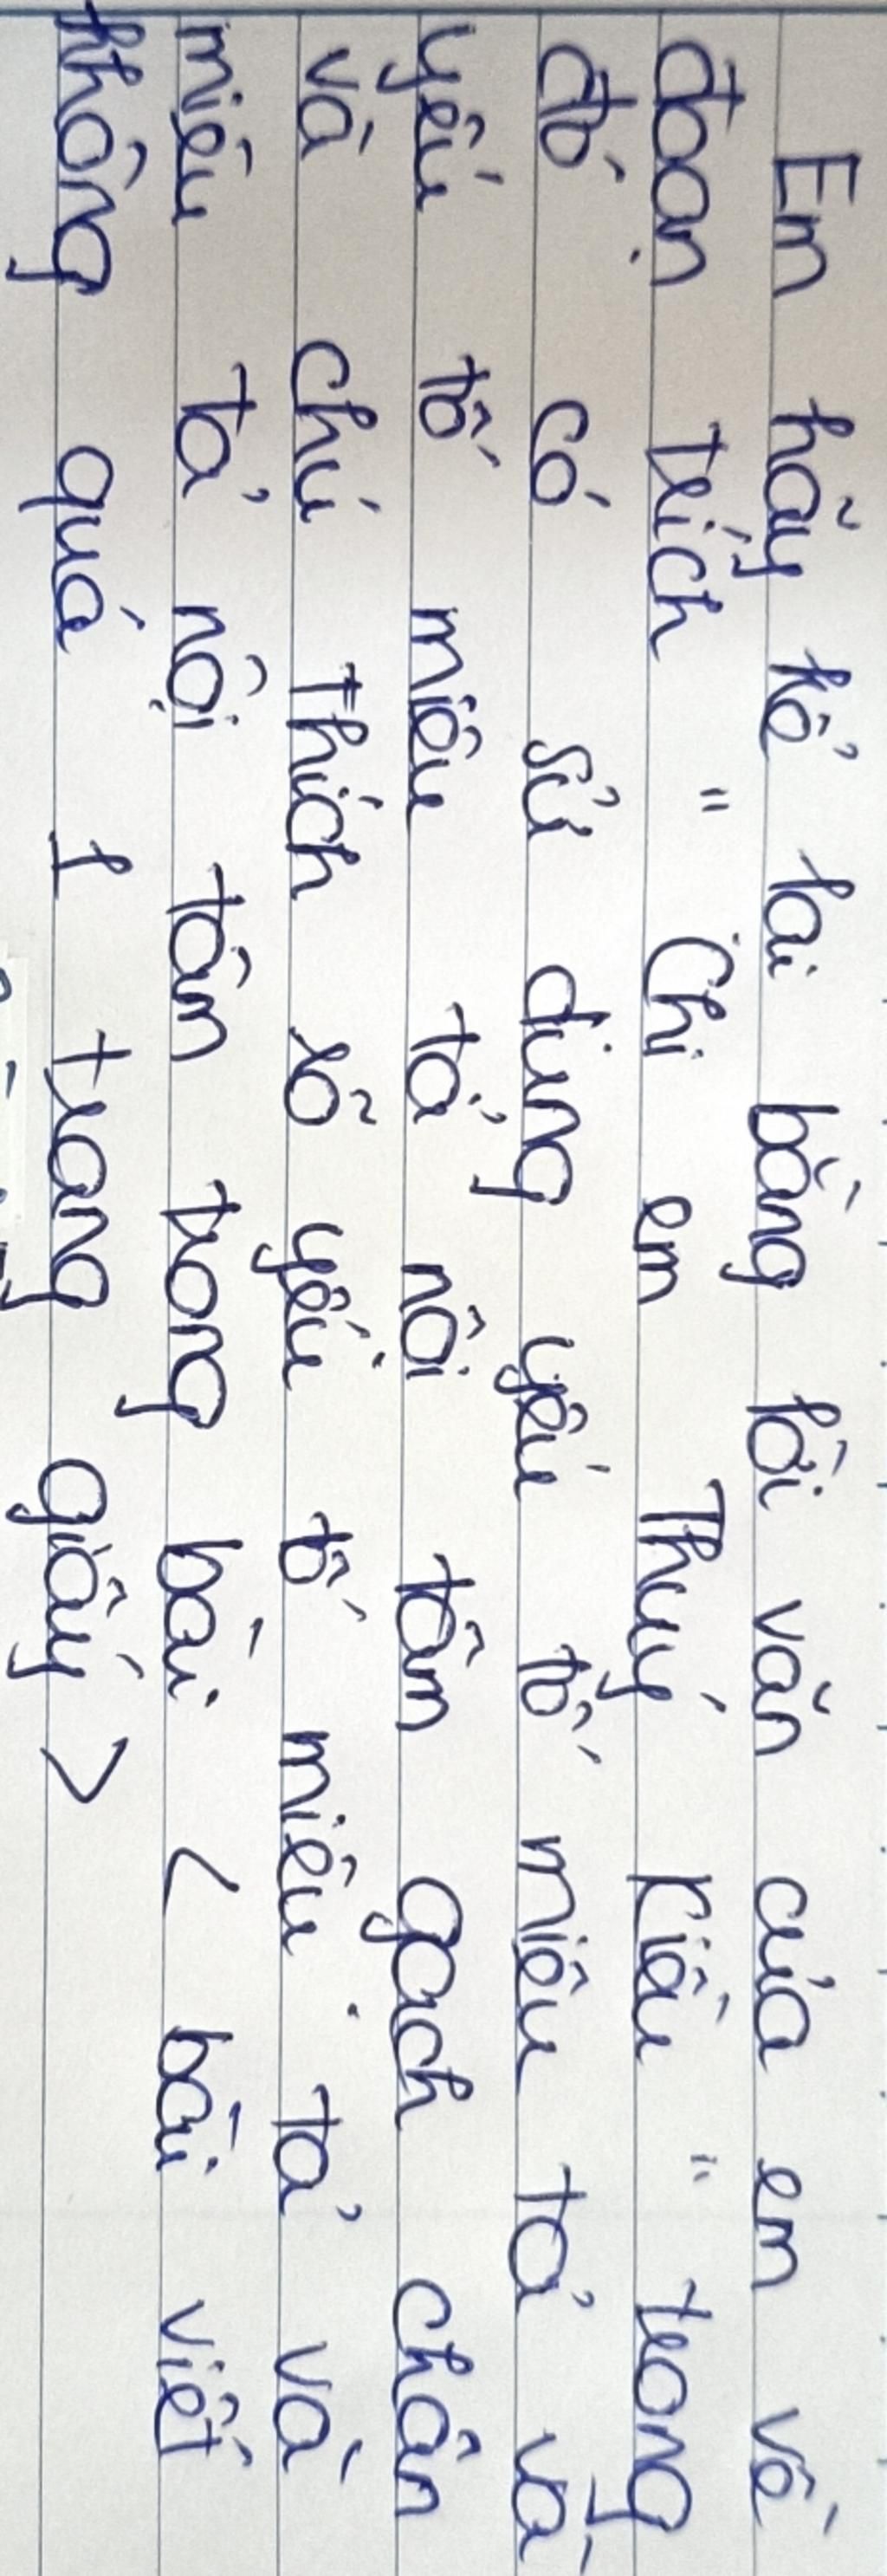 Em hãy kể lại bằng lời văn của em về
đoạn trích " Chị em Thuý Kiều " trong
đó có sử dụng yếu tố miêu tả và
yếu tố miêu tả nội tâm gạch chân
và chú thích rõ yếu tố miêu tả và
miêu tả nội tâm trong bài < bài viết
không quá 1 trang giấy >